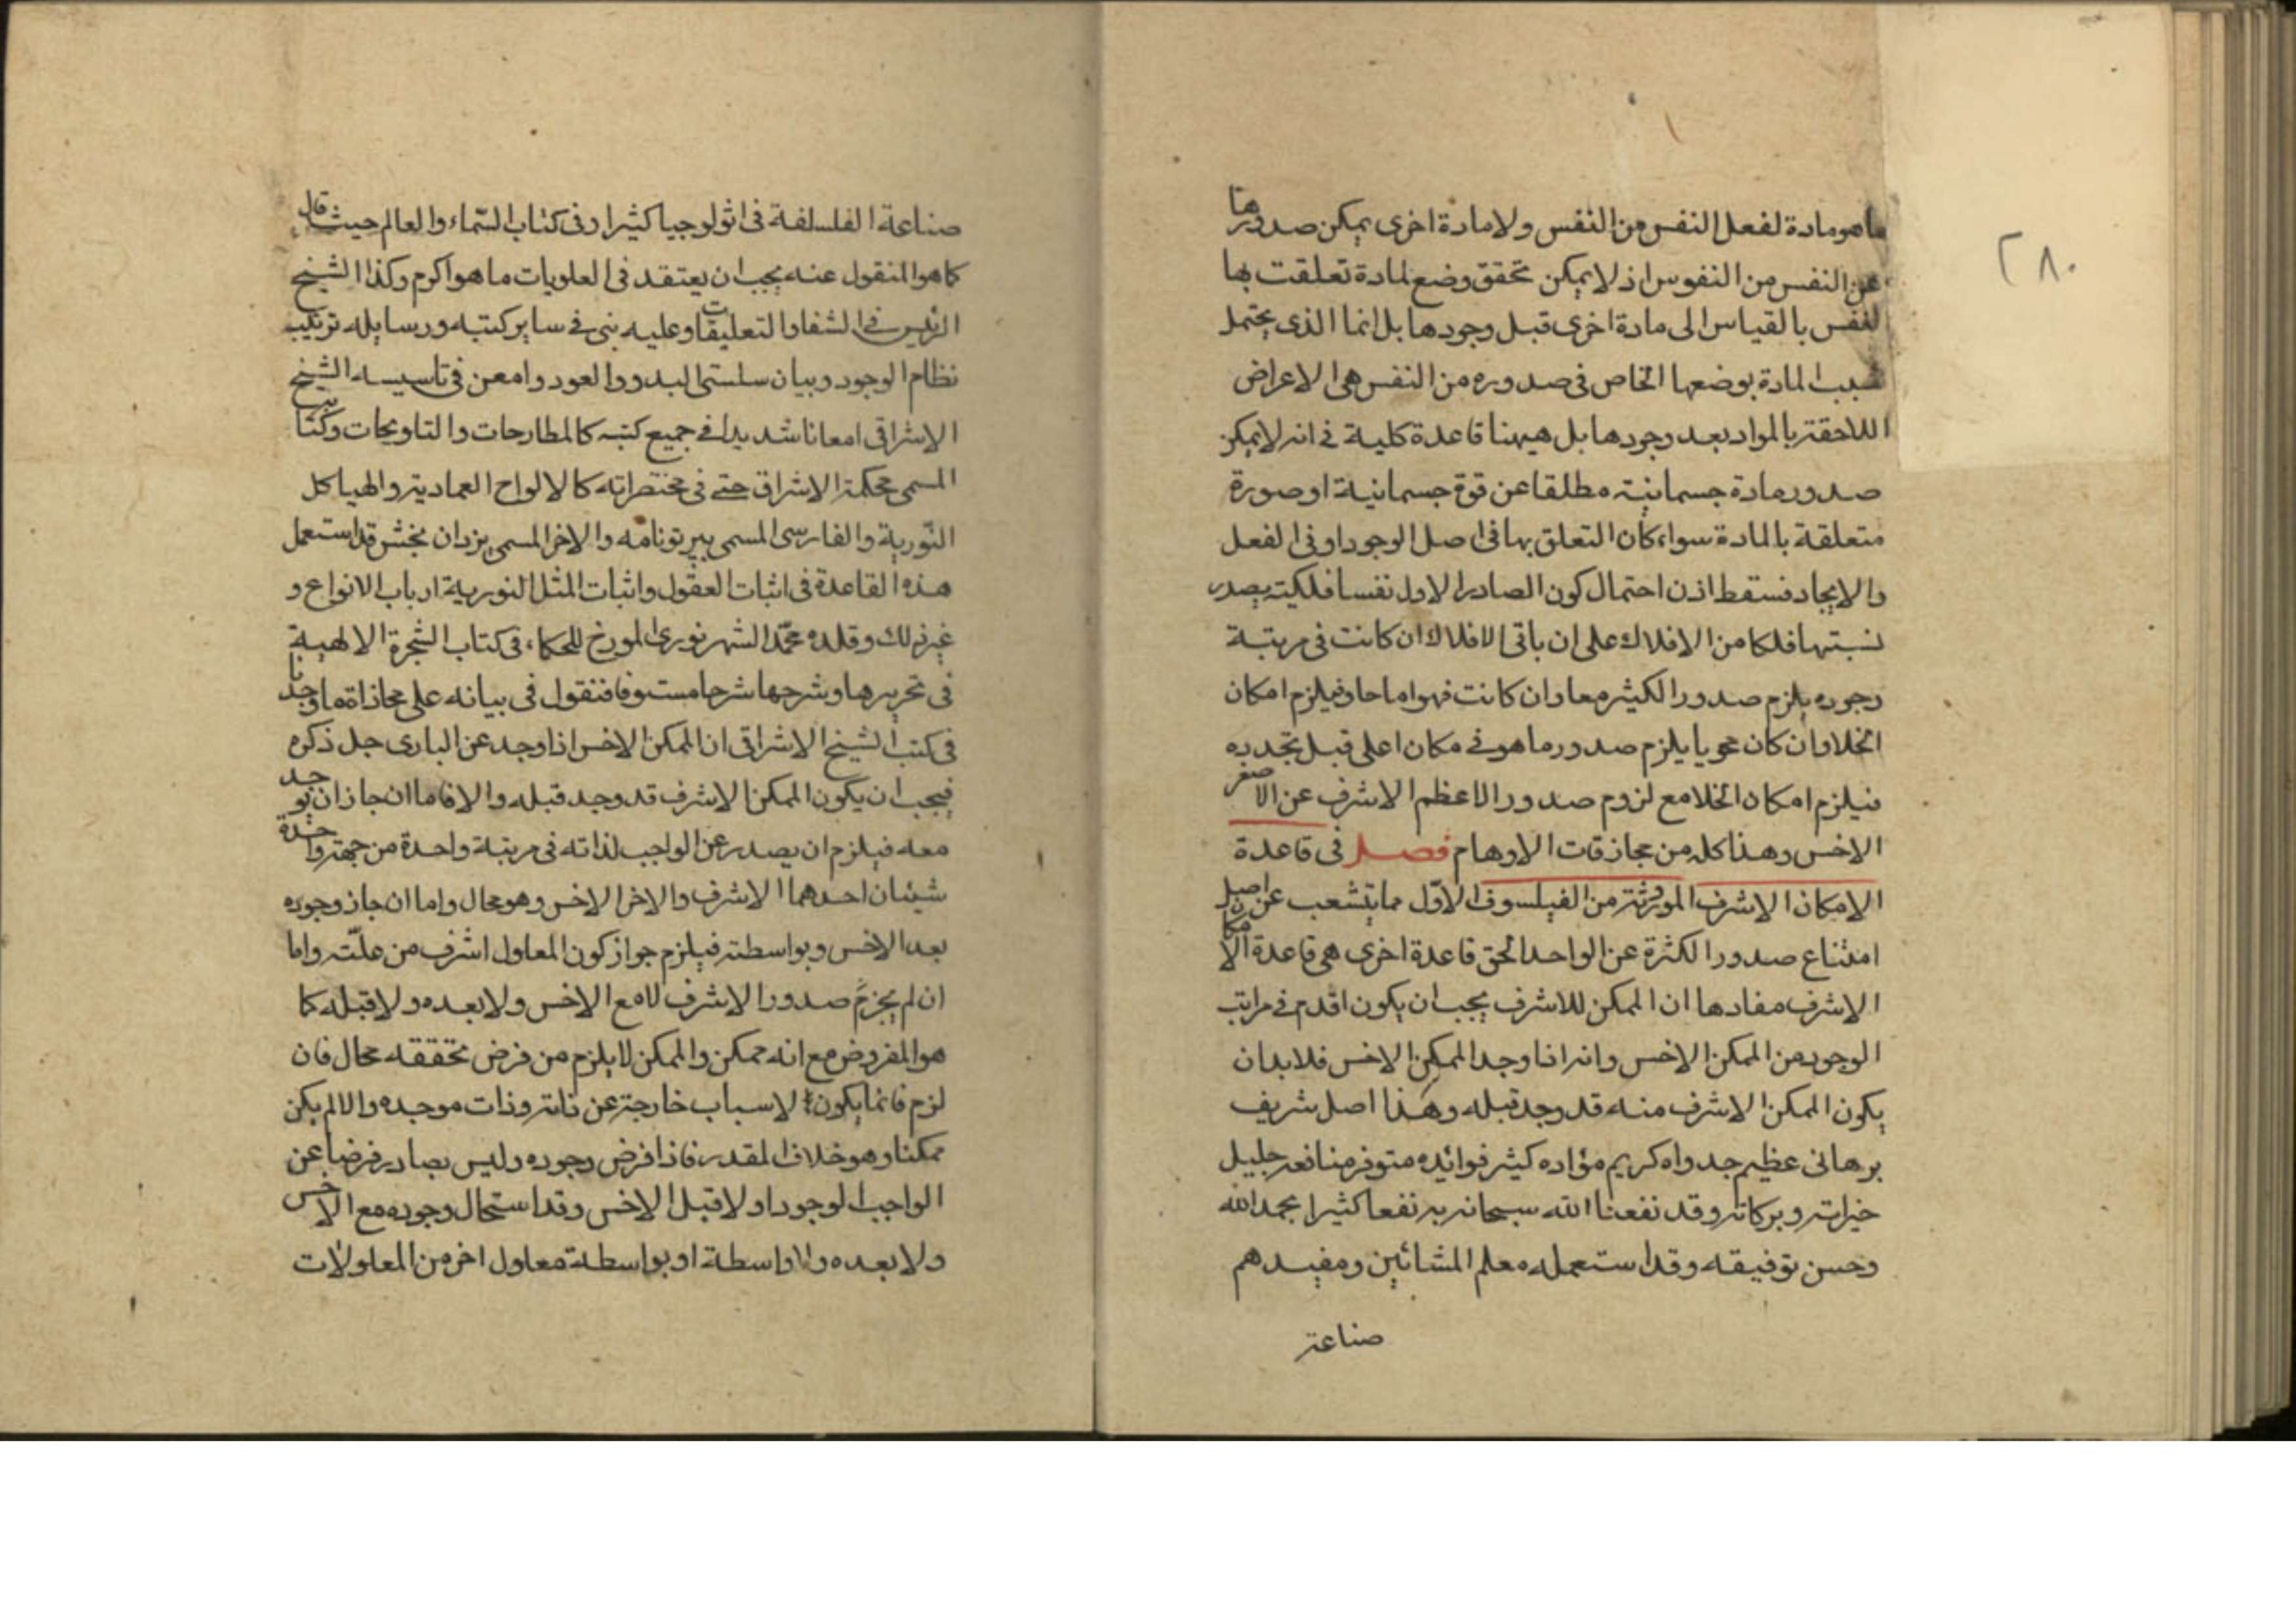 ٢٨٠
ما هو مادة لفعل النفس من النفس ولا مادة اخرى يمكن صدورها
عن النفس من النفوس اذ لا يمكن تحقق وضع لمادة تعلقت بها
لنفس بالقياس الى مادة اخرى قبل وجودها بل انما الذى يحتمل
سبب المادة بوضعها الخاص فى صدوره من النفس هى الاعراض
اللاحقة بالمواد بعد وجودها بل هيهنا قاعدة كلية فى انه لا يمكن
صدور مادة جسمانية مطلقا عن قوة جسمانية او صورة
متعلقة بالمادة سواء كان التعلق بها فى اصل الوجود او فى الفعل
والايجاد فسقط اذن احتمال كون الصادر الاول نفسا فلكية يصدر
نسبتها فلكا من الافلاك على ان باقى الافلاك ان كانت فى مرتبة
وجوده يلزم صدور الكثير معا وان كانت فهو اما حاو فيلزم امكان
الخلا وان كان محويا يلزم صدور ما هو فى مكان اعلى قبل تجدده
فيلزم امكان الخلا مع لزوم صدور الاعظم الاشرف عن الاصغر
الاخس وهذا كله من مجازفات الاوهام فصل فى قاعدة
الامكان الاشرف الموروثة من الفيلسوف الاوّل مما يتشعب عن اصل
امتناع صدور الكثرة عن الواحد الحق قاعدة اخرى هى قاعدة الامكان
الاشرف مفادها ان الممكن للاشرف يجب ان يكون اقدم فى مراتب
الوجود من الممكن الاخس وانه اذا وجد الممكن الاخس فلا بد ان
يكون الممكن الاشرف منه قد وجد قبله وهذا اصل شريف
برهانى عظيم جدواه كريم مؤاده كثير فوائده متوفر منافعه جليل
خيراته وبركاته وقد نفعنا الله سبحانه به نفعا كثيرا بحمد الله
وحسن توفيقه وقد استعمله معلم المشائين ومفيدهم
صناعة
صناعة الفلسلفة فى اثولوجيا كثيرا وفى كتاب السّماء والعالم حيث قال
كما هو المنقول عنه يجب ان يعتقد فى العلويات ما هو اكرم وكذا الشيخ
الرئيس فى الشفا والتعليقات وعليه بنى فى ساير كتبه ورسايله ترتيب
نظام الوجود وبيان سلستى البدو والعود وامعن فى تاسيسه الشيخ
الاشراقى امعانا شديدا فى جميع كتبه كالمطارحات والتلويحات وكتابه
المسمى بحكمة الاشراق حتى فى مختصراته كالالواح العمادية والهياكل
النّورية والفارسى المسمى ببرتونامه والاخر المسمى بيزدان بخش قد استعمل
هذه القاعدة فى اثبات العقول واثبات المثل النورية ارباب الانواع و
غير ذلك وقلده محمّد الشهرزورى المورخ للحكماء فى كتاب الشجرة الالهية
فى تحريرها وشرحها شرحا مستوفا فنقول فى بيانه على محاذاة ما وجدنا
فى كتب الشيخ الاشراقى ان الممكن الاخس اذا وجد عن البارى جل ذكره
فيجب ان يكون الممكن الاشرف قد وجد قبله والا فاما ان جاز ان يوجد
معه فيلزم ان يصدر عن الواجب لذاته فى مرتبة واحدة من جهة واحدة
شيئان احدهما الاشرف والاخر الاخس وهو محال واما ان جاز وجوده
بعد الاخس وبواسطته فيلزم جواز كون المعلول اشرف من علّته واما
ان لم يجز صدور الاشرف لا مع الاخس ولا بعده ولا قبله كما
هو المفروض مع انه ممكن والممكن لا يلزم من فرض تحققه محال فان
لزم فانما يكون لاسباب خارجة عن ذاته وذات موجده والا لم يكن
ممكنا وهو خلاف المقدر فاذا فرض وجوده وليس بصادر فرضا عن
الواجب الوجود اولا قبل الاخس وقد استحال وجوده مع الاخس
ولا بعده ولا واسطة او بواسطة معلول اخر من المعلولات